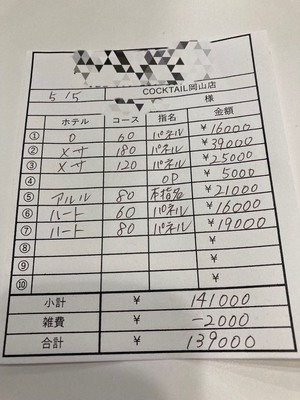 COCKTAIL岡山店
5/5 様
ホテル コース 指名 金額
① D 60 パネル ¥16000
② メサ 180 パネル ¥39000
③ メサ 120 パネル ¥25000
④ OP ¥ 5000
⑤ アルル 80 本指名 ¥21000
⑥ ハート 60 パネル ¥16000
⑦ ハート 80 パネル ¥19000
⑧ ¥
⑨ ¥
⑩ ¥
小計 ¥ 141000
雑費 ¥ -2000
合計 ¥ 139000